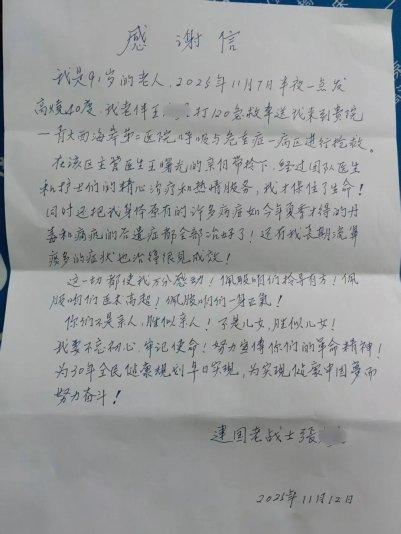 感谢信
我是91岁的老人，2025年11月7日半夜一点发
高烧40度，我老伴王 打120急救车送我来到贵院
一青大西海岸第二医院，呼吸与危重症一病区进行抢救。
在该区主管医生王曙光的亲自带领下，经过团队医生
和护士们的精心治疗和热情服务，我才保住了生命！
同时还把我身体原有的许多病症如今年夏季才得的丹
毒和病症的后遗症都全部治好了！还有我长期流鼻
痰多的症状也治得很见成效！
这一切都使我万分感动！佩服咱们领导有方！佩
服咱们医术高超！佩服咱们一身正气！
你们不是亲人，胜似亲人！不是儿女，胜似儿女！
我要不忘初心，牢记使命！努力宣传你们的革命精神！
为30年全民健康规划早日实现，为实现健康中国梦而
努力奋斗！
建国老战士張
2025年11月12日